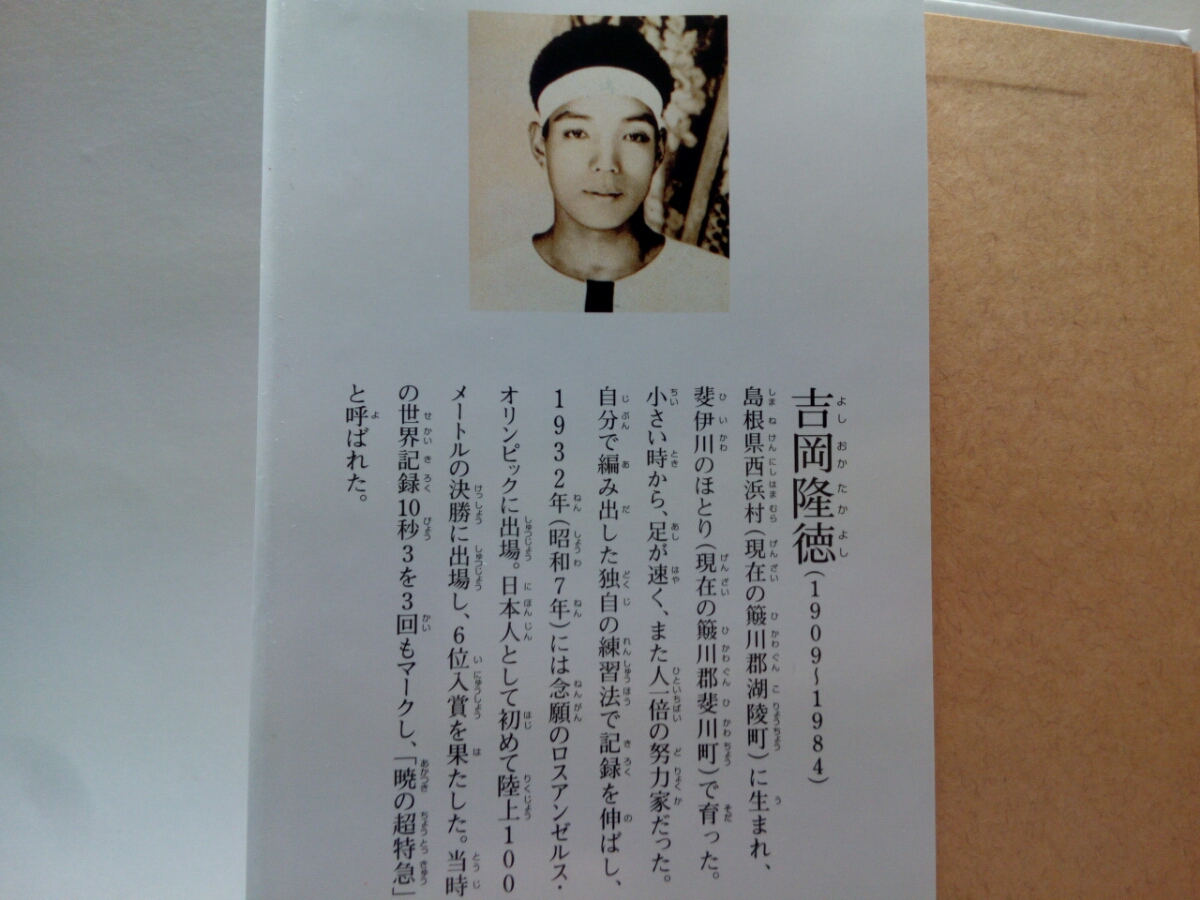 吉岡隆徳(1909〜1984)
島根県西浜村(現在の簸川郡湖陵町)に生まれ、
斐伊川のほとり(現在の簸川郡斐川町)で育った。
小さい時から、足が速く、また人一倍の努力家だった。
自分で編み出した独自の練習法で記録を伸ばし、
1932年(昭和7年)には念願のロスアンゼルス・
オリンピックに出場。日本人として初めて陸上100
メートルの決勝に出場し、6位入賞を果たした。当時
の世界記録10秒3を3回もマークし、「暁の超特急」
と呼ばれた。